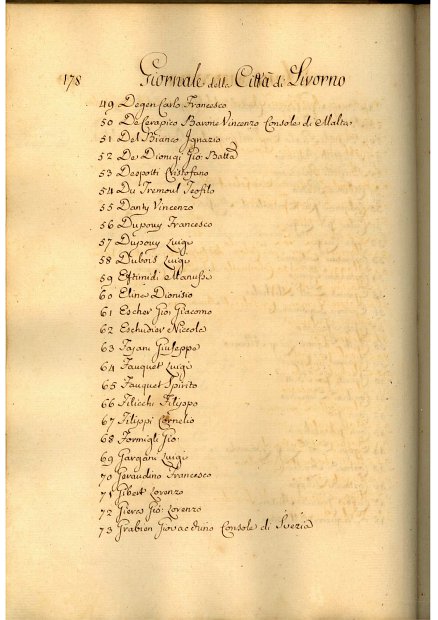 178 Giornale della Città di Livorno
49 Degen Carlo Francesco
50 De Cerapico Barone Vincenzo Console di Malta
51 Del Bianco Ignazio
52 De Dionigi Gio: Batta
53 Despotti Cristofano
54 Du Tremoul Teofilo
55 Danty Vincenzo
56 Dupouy Francesco
57 Dupouy Luigi
58 Dubois Luigi
59 Eftimidi
60 Elina Dionisio
61 Escher Gio: Giacomo
62 Eschudier Niccola
63 Fajani Giuseppe
64 Fauquet Luigi
65 Fauquet Spirito
66 Filicchi Filippo
67 Filippi Cornelio
68 Formigli Gio:
69 Gargani Luigi
70 Geraudino Francesco
71 Gibert Lorenzo
72 Gio: Lorenzo
73 Grabien Console di Svezia